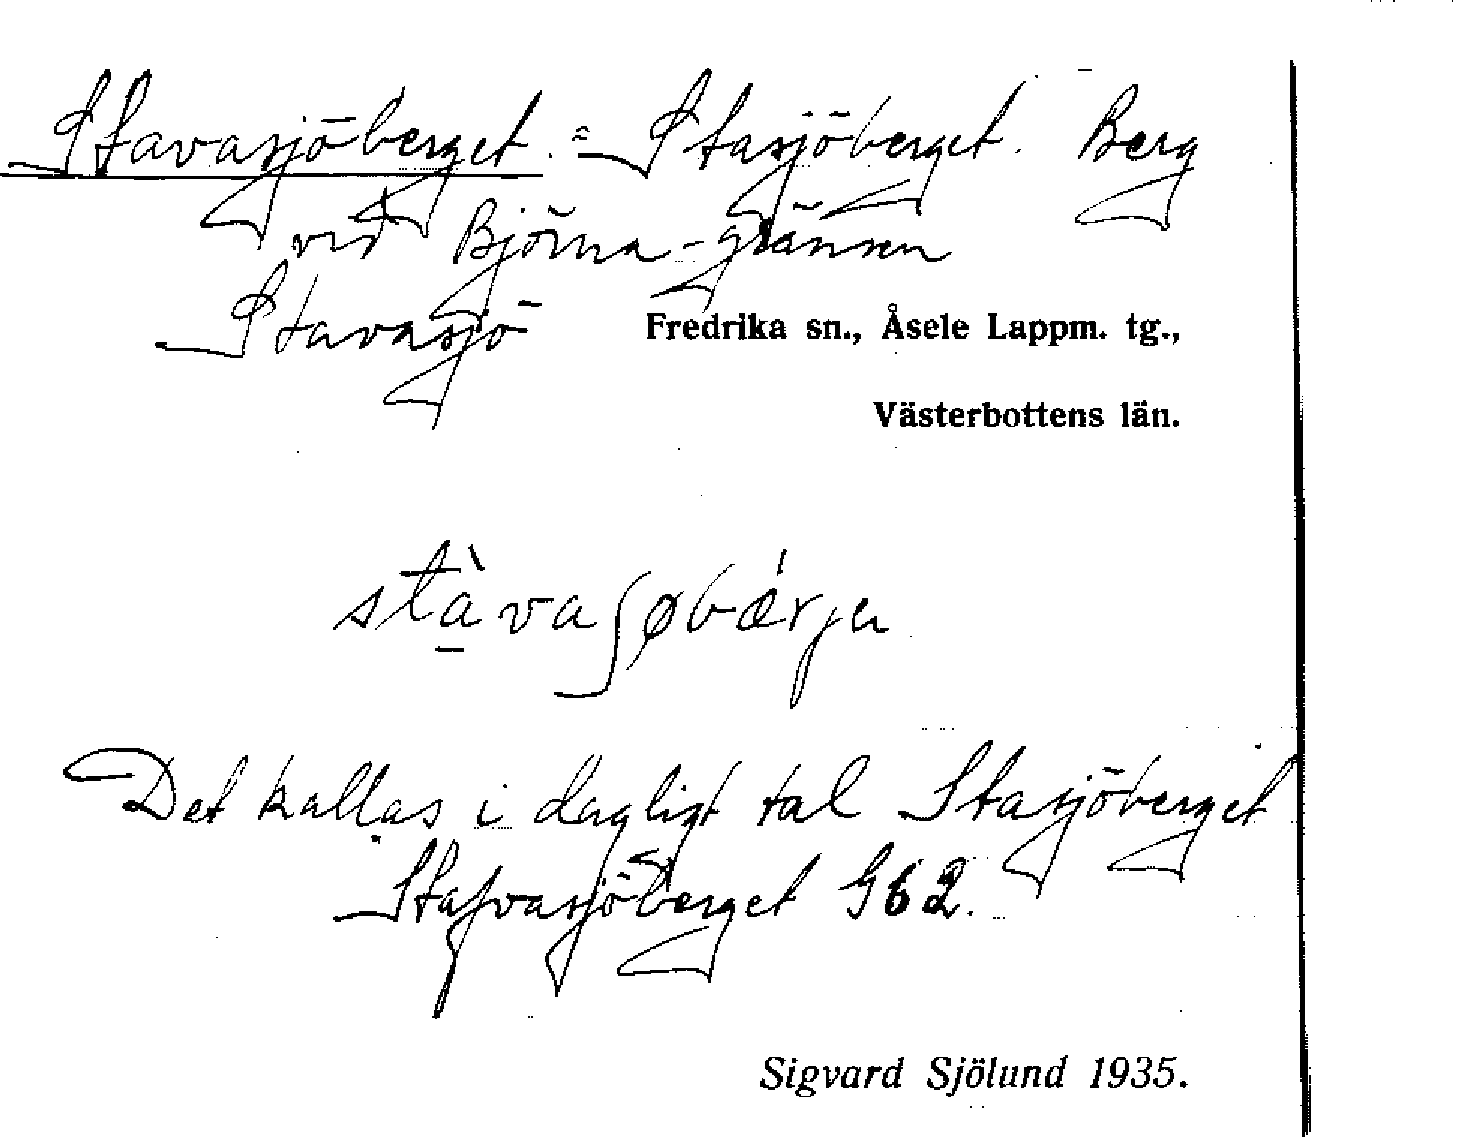 Stavasjöberget. = Stasjöberget. Berg
vid Björna-gränsen
Stavasjö
Fredrika sn., Åsele Lappm. tg.,
Västerbottens län.
stàvaʃøbǽrjɐ
Det kallas i dagligt tal Stasjöberget
Stafvasjöberget G62.
Sigvard Sjölund 1935.